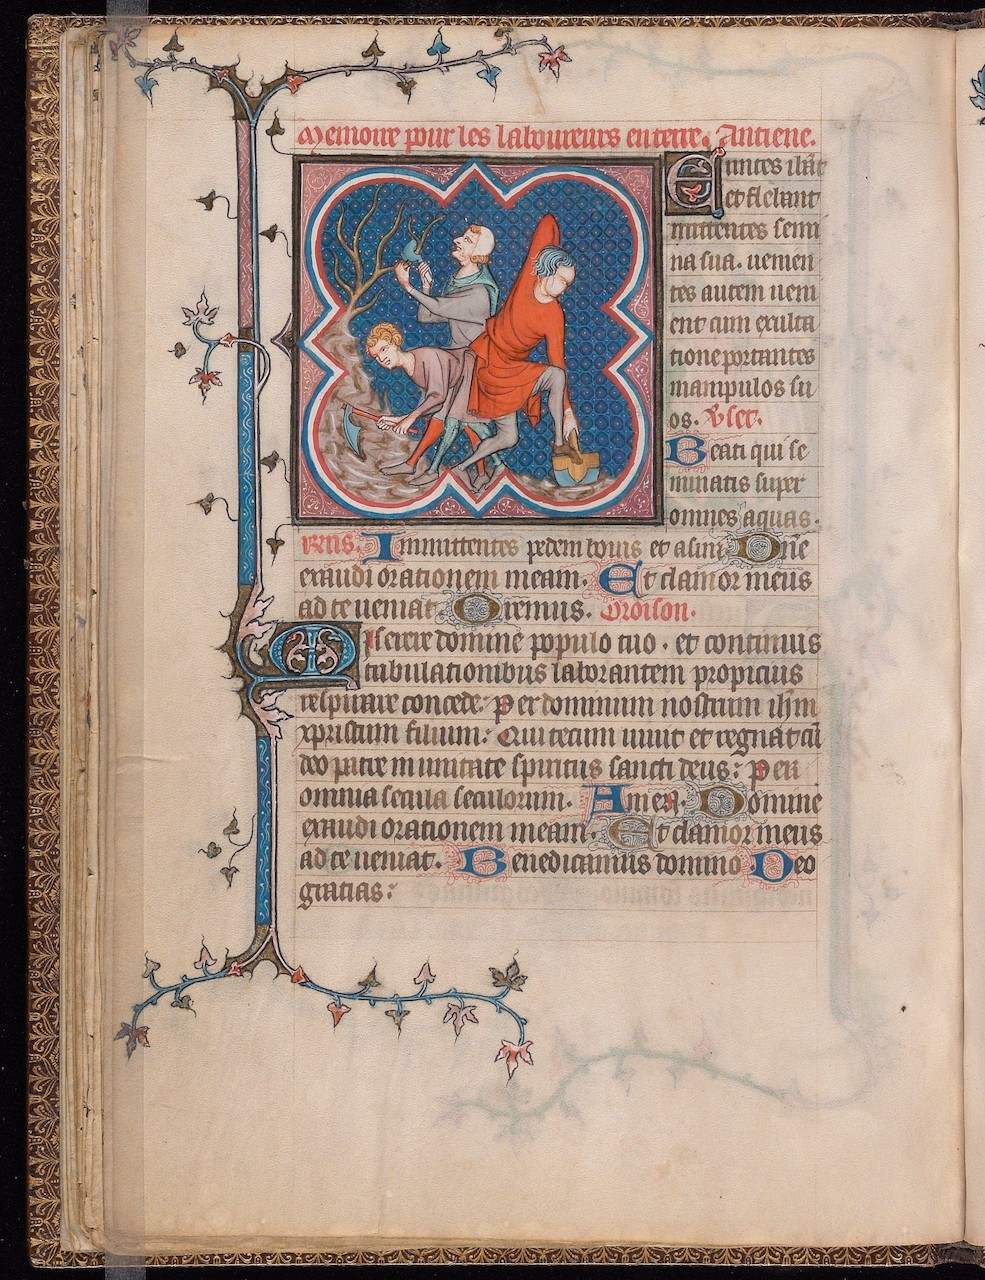 Memoire pour les laboureurs en terre. Antiene.
Euntes ibāt
et flebant
mittentes semi
na sua. uenien
tes autem ueni
ent cum exulta
tione portantes
manipulos su
os. Vset.
Beati qui se
minatis super
omnes aquas.
Inmittentes pedem bouis et asini. Dñe
exaudi orationem meam. Et clamor meus
ad te ueniat. Oremus. Oroison.
Miserere domine populo tuo. et continuis
tribulationibus laborantem propicius
respirare concede. Per dominum nostrum ihm̄
xpristum filium. Qui tecum uiuit et regnat cū
deo patre in unitate spiritus sancti deus: Per
omnia secula seculorum. Amen. Domine
exaudi orationem meam. Et clamor meus
ad te ueniat. Benedicamus domino Deo
gratias: